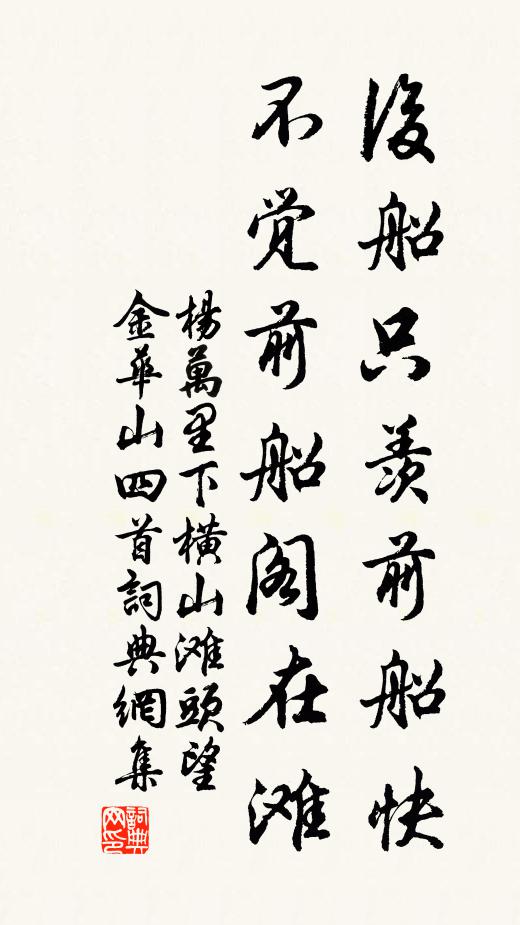 後船只羨前船快
不覚前船阁在滩
楊萬里下橫山滩頭望
金華山四首詞典網集
詞典
网印